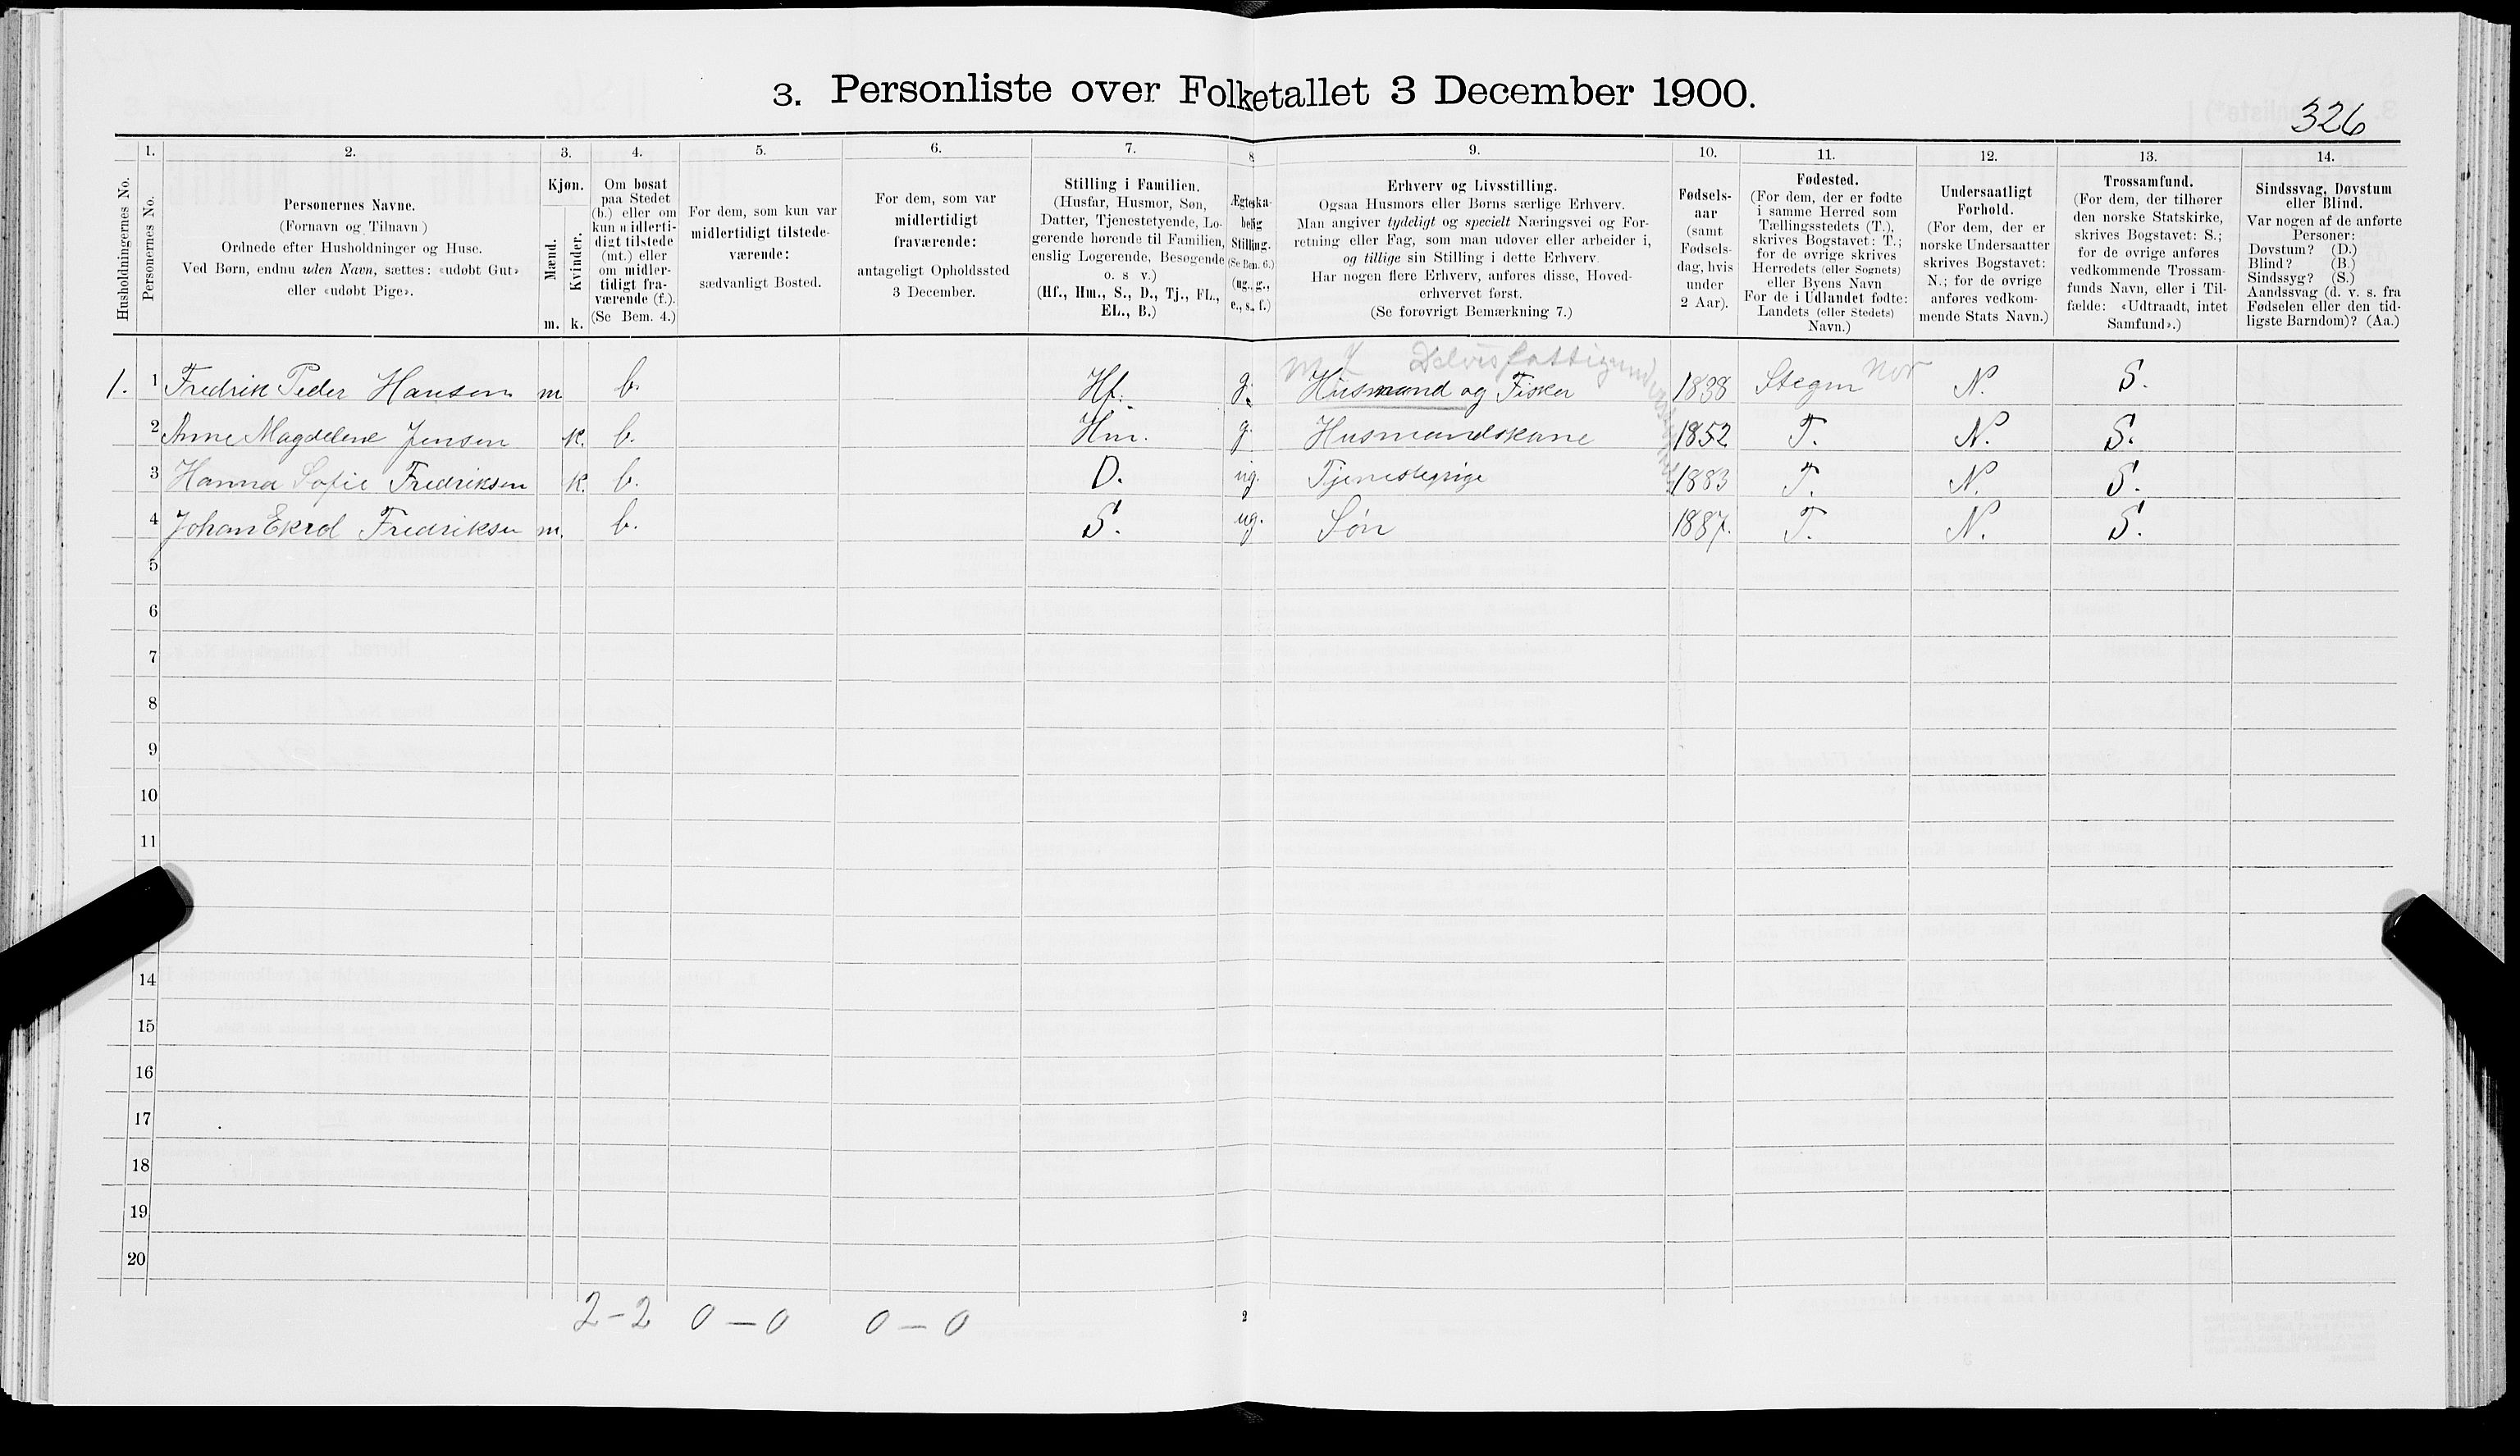 3. Personliste over Folketallet 3 December 1900.
326
1. 2. 3. 4. 5. 6. 7. 8 9. 10. 11. 12. 13. 14.
Husholdningernes No.
Personernes No.
Personernes Navne.
(Fornavn og Tilnavn )
Ordnede efter Husholdninger og Huse.
Ved Børn, endnu uden Navn, sættes: «udøbt Gut»
eller «udøbt Pige».
Kjøn.
Mænd.
Kvinder.
m. k.
Om bosat
paa Stedet
(b.) eller om
kun midlerti-
digt tilstede
(mt.) eller
om midler-
tidigt fra-
værende (f.).
(Se Bem. 4.)
For dem, som kun var
midlertidigt tilstede-
værende:
sædvanligt Bosted.
For dem, som var
midlertidigt
fraværende:
antageligt Opholdssted
3 December.
Stilling i Familien.
(Husfar, Husmor, Søn,
Datter, Tjenestetyende, Lo-
gerende hørende til Familien,
enslig Logerende, Besøgende
o. s v.)
(Hf., Hm., S., D., Tj., FL.,
EL., B.)
Ægteska-
belig
Stilling.
(Se Bem. 6.)
(ug., g.,
e., s., f.)
Erhverv og Livsstilling.
Ogsaa Husmors eller Børns særlige Erhverv.
Man angiver tydeligt og specielt Næringsvei og For-
retning eller Fag, som man udøver eller arbeider i,
og tillige sin Stilling i dette Erhverv.
Har nogen flere Erhverv, anføres disse, Hoved-
erhvervet først.
(Se forøvrigt Bemærkning 7.)
Fødsels-
aar
(samt
Fødsels-
dag, hvis
under
2 Aar).
Fødested.
(For dem, der er fødte
i samme Herred som
Tællingsstedets (T.),
skrives Bogstavet: T.;
for de øvrige skrives
Herredets (eller Sognets)
eller Byens Navn
For de i Udlandet fødte:
Landets (eller Stedets)
Navn.)
Undersaatligt
Forhold.
(For dem, der er
norske Undersaatter
skrives Bogstavet:
N.; for de øvrige
anføres vedkom-
mende Stats Navn.)
Trossamfund.
(For dem, der tilhører
den norske Statskirke,
skrives Bogstavet: S.;
for de øvrige anføres
vedkommende Trossam-
funds Navn, eller i Til-
fælde: «Udtraadt, intet
Samfund».)
Sindssvag, Døvstum
eller Blind.
Var nogen af de anførte
Personer:
Døvstum? (D.)
Blind? (B.)
Sindssyg? (S.)
Aandssvag (d. v. s. fra
Fødselen eller den tid-
ligste Barndom)? (Aa.)
Delvis fattigunderstøttet
1. 1 Fredrik Peder Hansen m b. Hf. g. Husmand og Fisker 1838 Stegen Nor N. S.
2 Anne Magdelene Jensen k. b. Hm. g. Husmandskone 1852 T. N. S.
3 Hanna Sofie Fredriksen k. b. D. ug. Tjenestepige 1883 T. N. S.
4 Johan Fredriksen m. b. S. ug. Søn 1887. T. N. S.
5
6
7
8
9
10
11
14
15
16
17
18
19
20
2-2 0-0 0-0
2